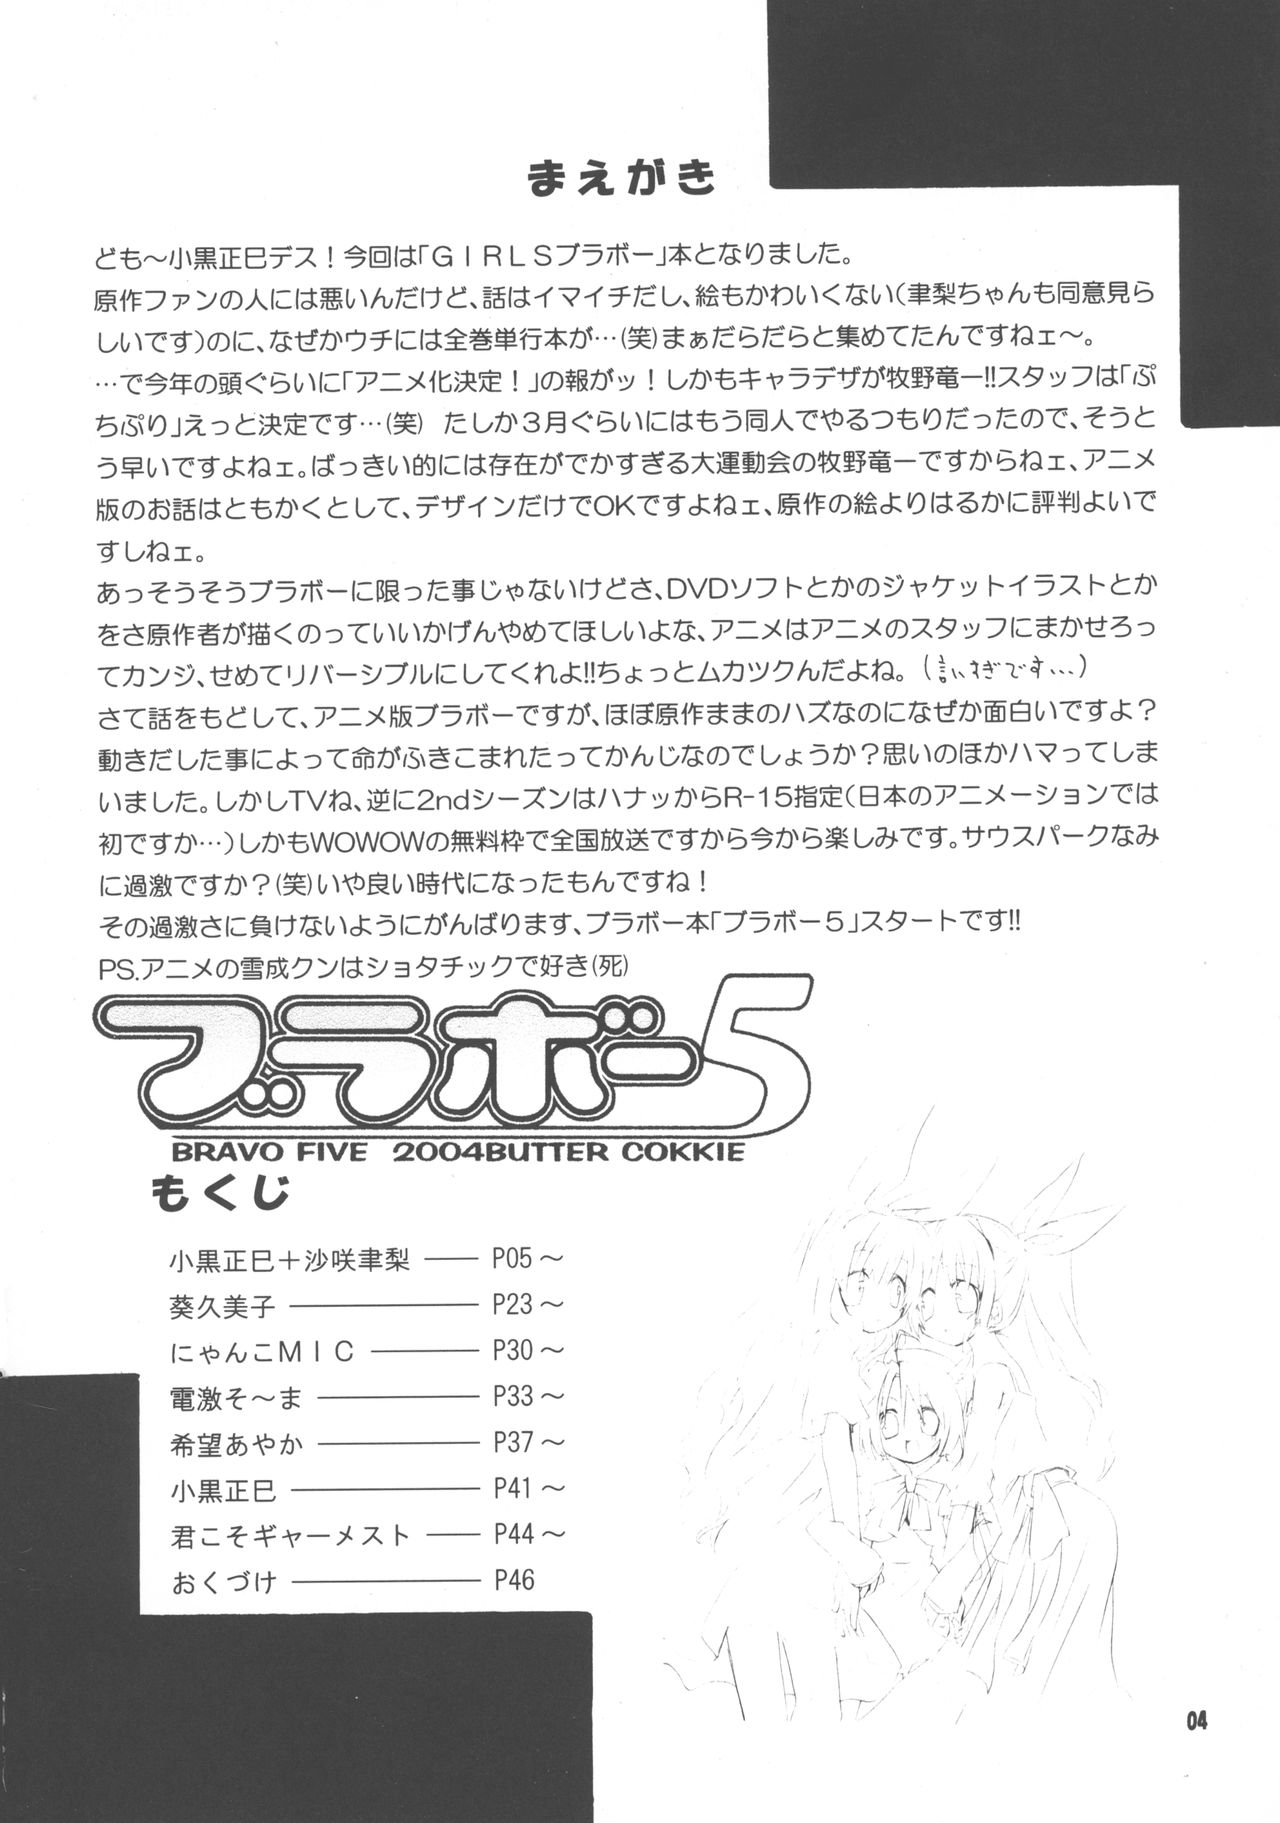 まえがき
ども～小黒正巳デス！今回は「ＧＩＲＬＳブラボー」本となりました。
原作ファンの人には悪いんだけど、話はイマイチだし、絵もかわいくない（聿梨ちゃんも同意見ら
しいです）のに、なぜかウチには全巻単行本が…(笑)まぁだらだらと集めてたんですねェ～。
…で今年の頭ぐらいに「アニメ化決定！」の報がッ！しかもキャラデザが牧野竜一!!スタッフは「ぷ
ちぷり」えっと決定です…(笑)　たしか３月ぐらいにはもう同人でやるつもりだったので、そうと
う早いですよねェ。ばっきい的には存在がでかすぎる大運動会の牧野竜一ですからねェ、アニメ
版のお話はともかくとして、デザインだけでOKですよねェ、原作の絵よりはるかに評判よいで
すしねェ。
あっそうそうブラボーに限った事じゃないけどさ、DVDソフトとかのジャケットイラストとか
をさ原作者が描くのっていいかげんやめてほしいよな、アニメはアニメのスタッフにまかせろっ
てカンジ、せめてリバーシブルにしてくれよ!!ちょっとムカツクんだよね。（言いすぎです…）
さて話をもどして、アニメ版ブラボーですが、ほぼ原作ままのハズなのになぜか面白いですよ？
動きだした事によって命がふきこまれたってかんじなのでしょうか？思いのほかハマってしま
いました。しかしTVね、逆に2ndシーズンはハナッからR-15指定（日本のアニメーションでは
初ですか…）しかもWOWOWの無料枠で全国放送ですから今から楽しみです。サウスパークなみ
に過激ですか？(笑)いや良い時代になったもんですね！
その過激さに負けないようにがんばります、ブラボー本「ブラボー５」スタートです!!
PS.アニメの雪成クンはショタチックで好き(死)
ブラボー5
BRAVO FIVE 2004BUTTER COKKIE
もくじ
小黒正巳＋沙咲聿梨 ―― P05～
葵久美子 ―――――― P23～
にゃんこＭＩＣ ――― P30～
電激そ～ま ――――― P33～
希望あやか ――――― P37～
小黒正巳 ―――――― P41～
君こそギャーメスト ―― P44～
おくづけ ―――――― P46
04